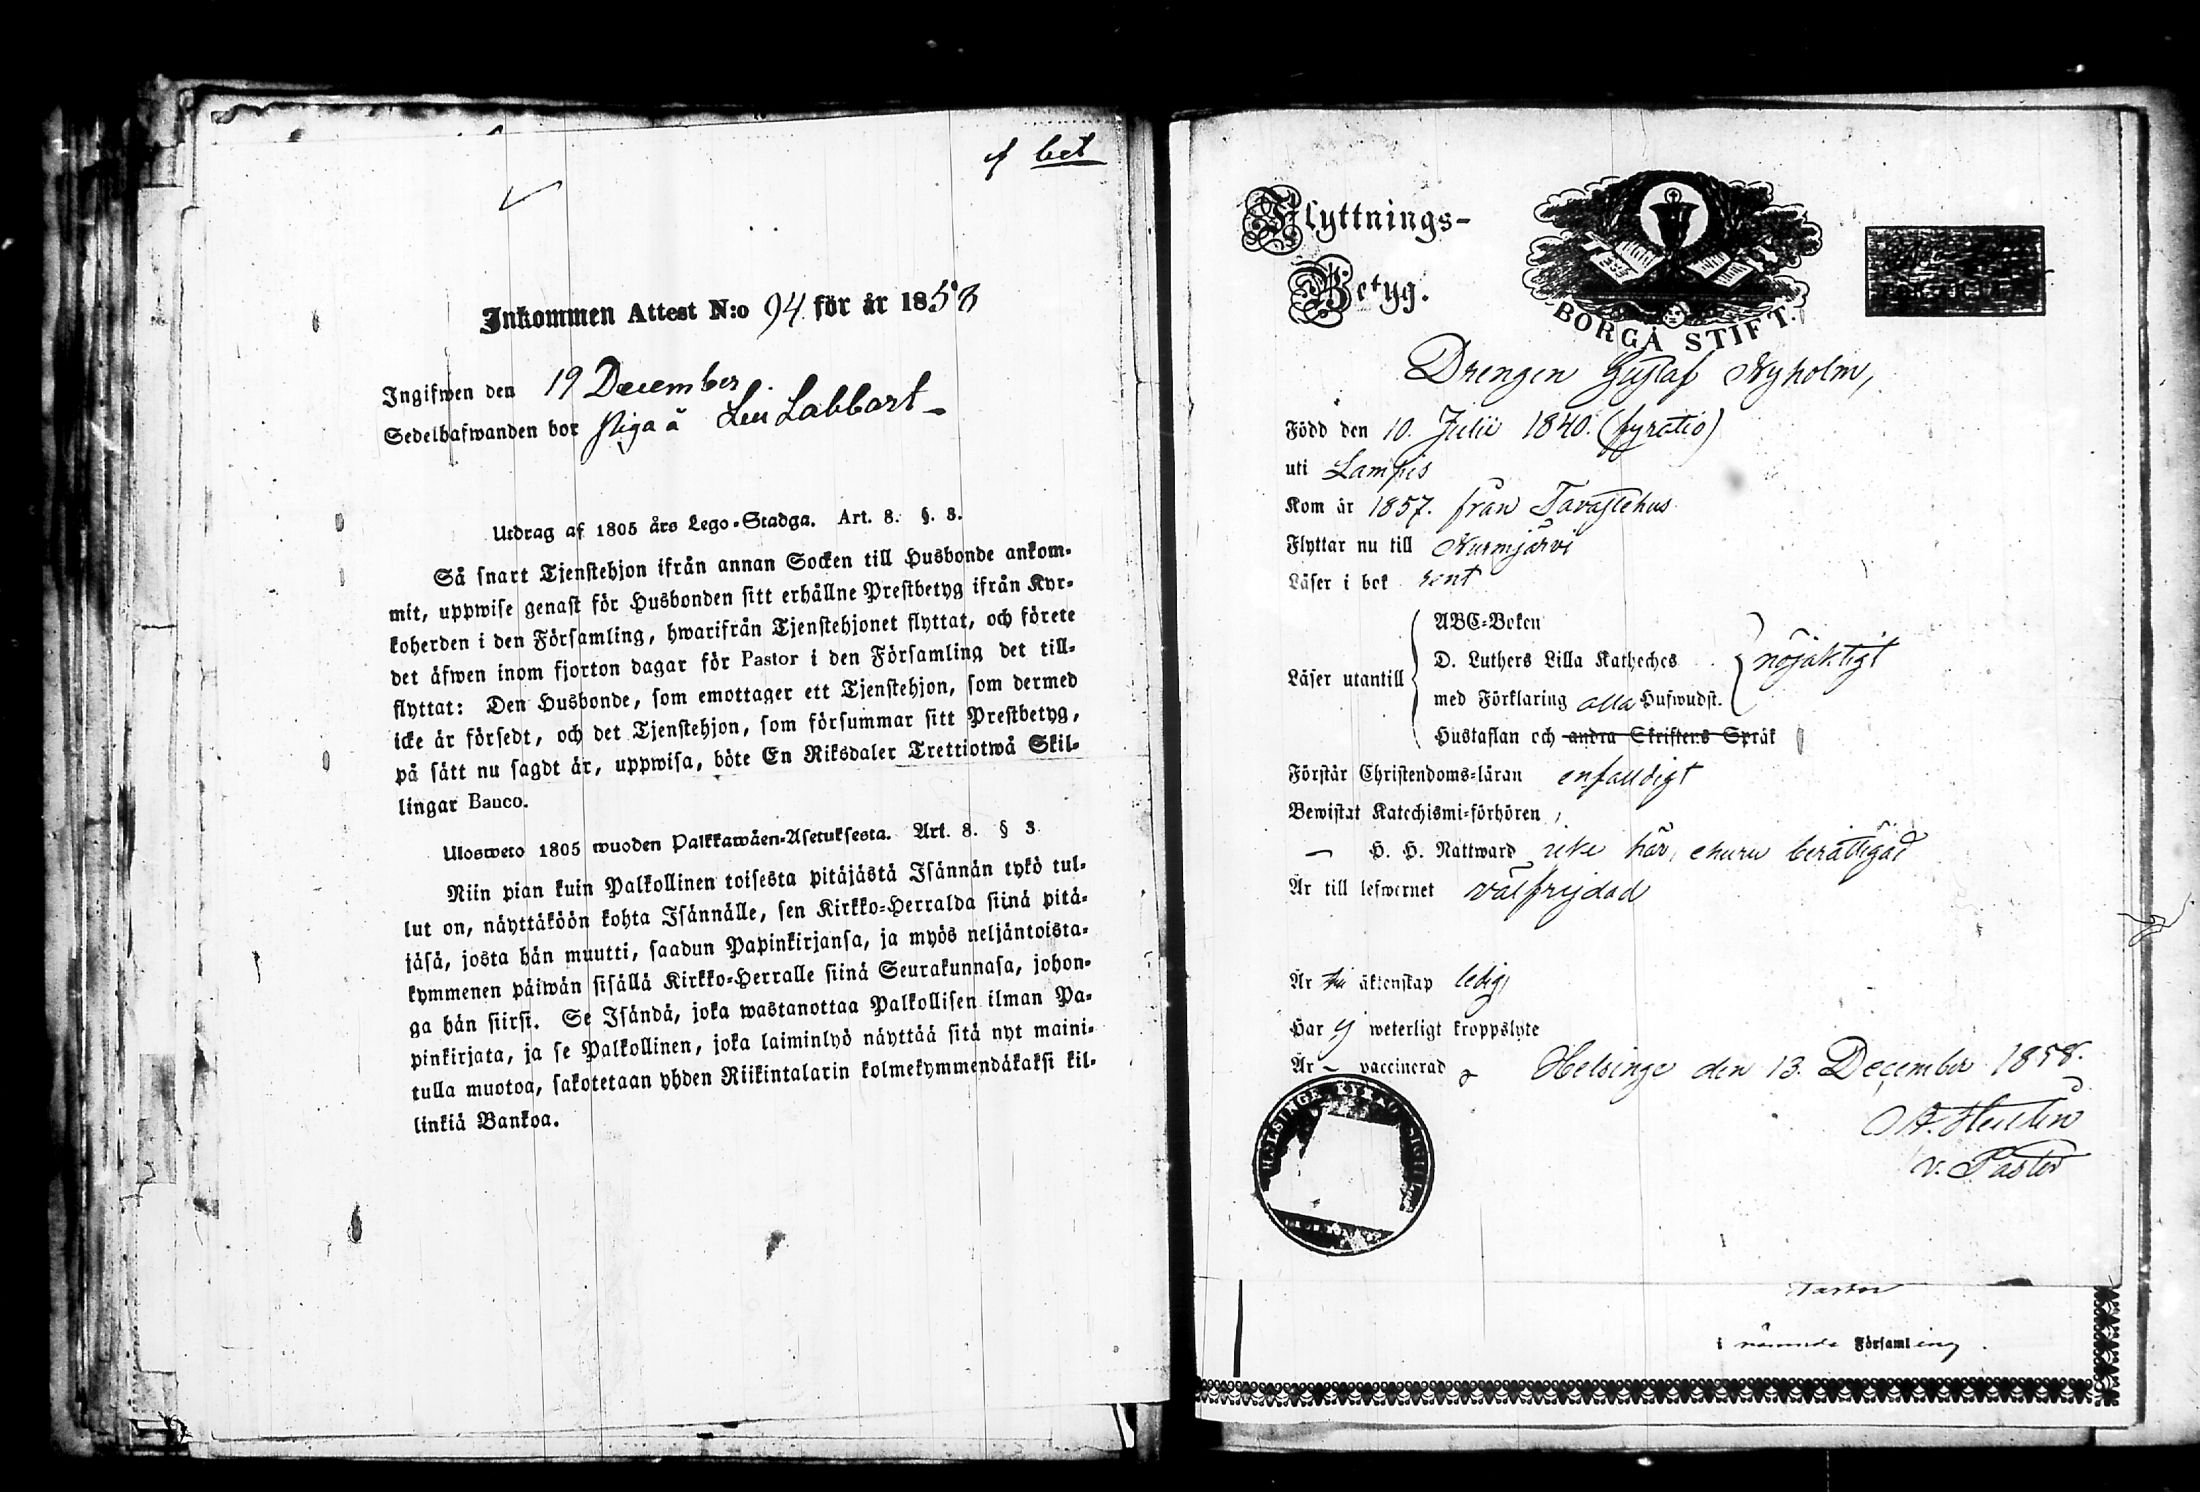 bet
Inkommen Attest N:o 94 för år 1858
Ingifwen den 19 December.
Sedelhafwanden bor piga å Labbart
Utdrag af 1805 års Lego-Stadga. Art. 8. §. 3.
Så snart Tjenstehjon ifrån annan Socken till Husbonde ankom-
mit, uppwise genast för Husbonden sitt erhållne Prestbetyg ifrån Kyr-
koherden i den Församling, hwarifrån Tjenstehjonet flyttat, och förete
det äfwen inom fjorton dagar för Pastor i den Församling det till-
flyttat: Den Husbonde, som emottager ett Tjenstehjon, som dermed
icke är försedt, och det Tjenstehjon, som försummar sitt Prestbetyg,
på sätt nu sagdt är, uppwisa, böte En Riksdaler Trettiotwå Skil-
lingar Banco.
Ulosweto 1805 wuoden Palkkawäen-Asetuksesta. Art. 8. § 3
Niin pian kuin Palkollinen toisesta pitäjästä Isännän tykö tul-
lut on, näyttäköön kohta Isännälle, sen Kirkko-Herralda siinä pitä-
jäsä, josta hän muutti, saadun Papinkirjansa, ja myös neljäntoista-
kymmenen päiwän sisällä Kirkko-Herralle siinä Seurakunnasa, johon-
ga hän siirsi. Se Isändä, joka wastanottaa Palkollisen ilman Pa-
pinkirjata, ja se Palkollinen, joka laiminlyö näyttää sitä nyt maini-
tulla muotoa, sakotetaan yhden Riikintalarin kolmekymmendäkaksi kil-
linkiä Bankoa.
Flyttnings-
Betyg.
BORGÅ STIFT.
Drengen Gustaf Nyholm,
Född den 10. Julii 1840. (fyratio)
uti Lampis
Kom år 1857. från Tavastehus
Flyttar nu till Nurmjärvi
Läser i bok rent
ABC-Boken
Läser utantill D. Luthers Lilla Katheches nöjaktigt
med Förklaring alla Hufwudst.
Hustaflan och andra Skriftens Språk
Förstår Christendoms-läran enfaldigt
Bewistat Katechismi-förhören
— H. H. Nattward icke här, ehuru berättigad
Är till lefwernet välfrejdad
Är till äktenskap ledig
Har ej weterligt kroppslyte
Är – vaccinerad Helsinge den 13. December 1858.
HELSINGE KYRKO SIGILL
v. Pastor
Pastor
i nämnde Församling.